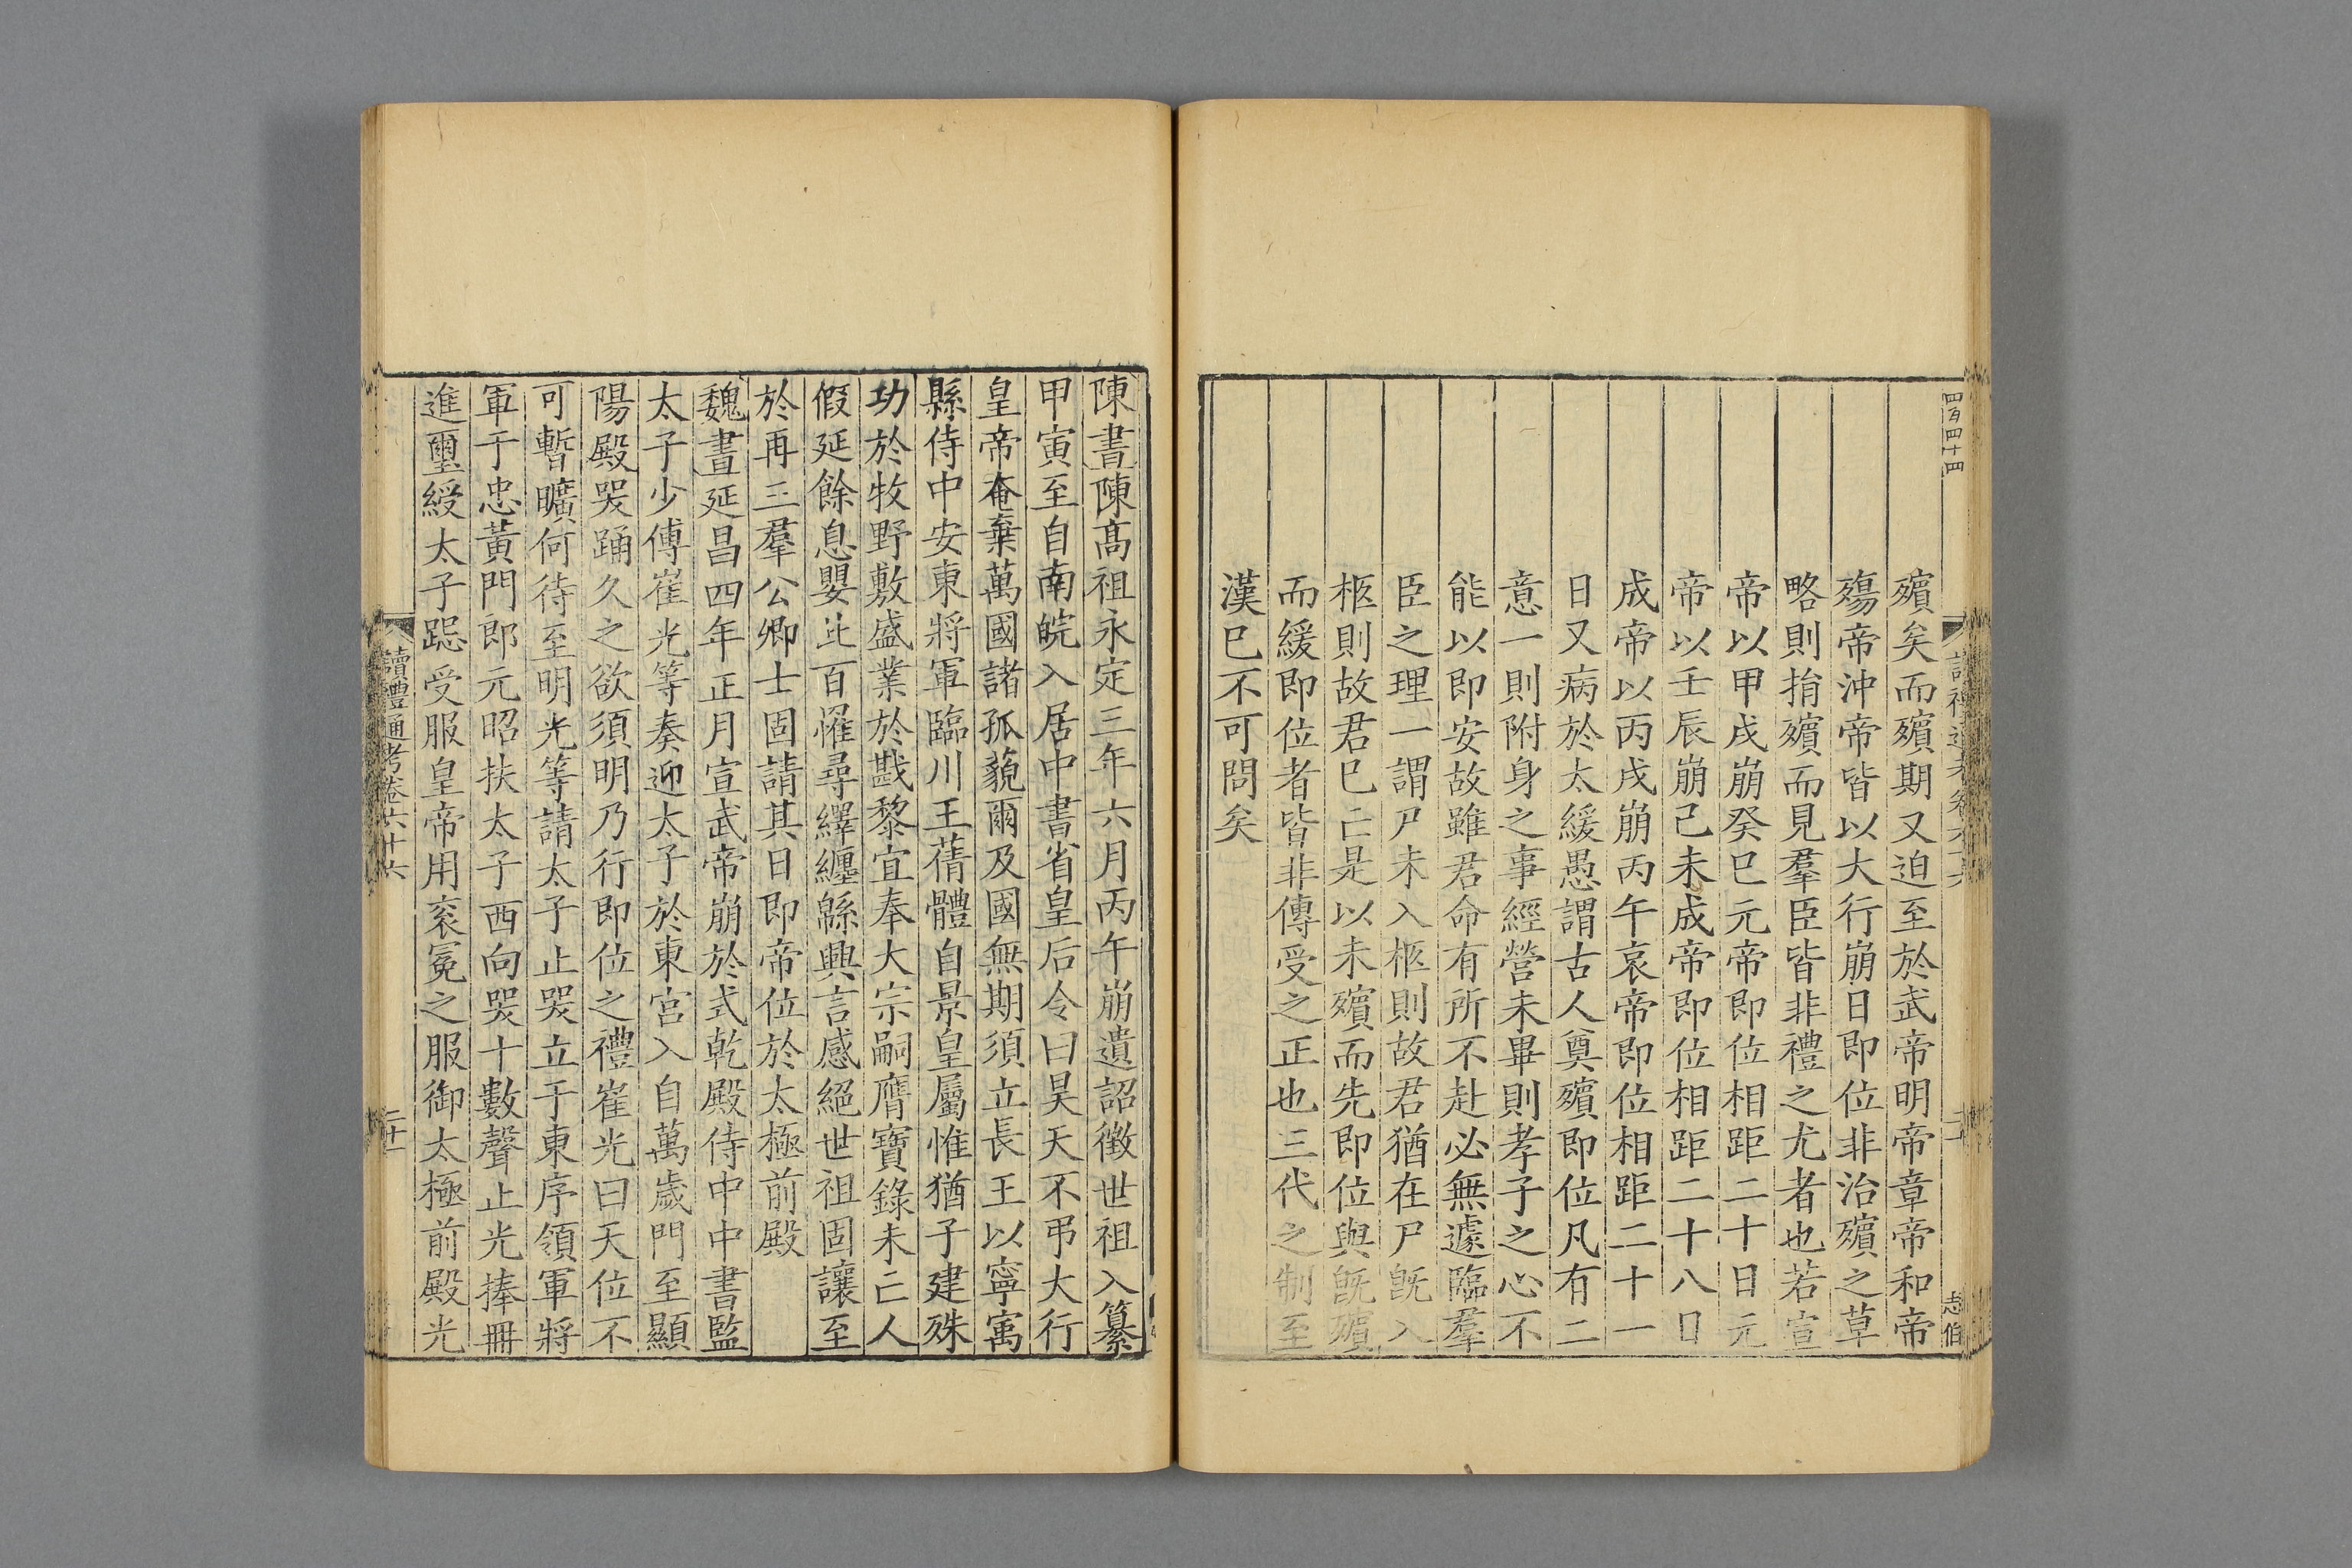 四百四十四
殯矣而殯期又迫至於武帝明帝章帝和帝
殤帝沖帝皆以大行崩日即位非治殯之草
略則捎殯而見羣臣皆非禮之尤者也若宣
帝以甲戌崩癸巳元帝即位相距二十日元
帝以壬辰崩己未成帝即位相距二十八日
成帝以丙戌崩丙午哀帝即位相距二十一
日又病於太緩愚謂古人奠殯即位凡有二
意一則附身之事經營未畢則孝子之心不
能以即安故雖君命有所不赴必無遽臨羣
臣之理一謂尸未入柩則故君猶在尸旣入
柩則故君巳亡是以未殯而先即位與旣殯
而緩即位者皆非傳受之正也三代之制至
漢巳不可問矣
陳書陳高祖永定三年六月丙午崩遺詔徵世祖入纂
甲寅至自南皖入居中書省皇后令曰昊天不弔大行
皇帝奄棄萬國諸孤藐爾及國無期須立長王以寧寓
縣侍中安東將軍臨川王蒨體自景皇屬惟猶子建殊
功於牧野敷盛業於戡黎宜奉大宗嗣膺寶錄未亡人
假延餘息嬰此百罹尋繹纏緜興言感絕世祖固讓至
於再三羣公卿士固請其日即帝位於太極前殿
魏書延昌四年正月宣武帝崩於式乾殿侍中中書監
太子少傅崔光等奏迎太子於東宮入自萬歲門至顯
陽殿哭踊久之欲須明乃行即位之禮崔光曰天位不
可暫曠何待至明光等請太子止哭立于東序領軍將
軍于忠黃門郎元昭扶太子西向哭十數聲止光捧冊
進璽綬太子跽受服皇帝用袞冕之服御太極前殿光
讀禮通考卷六十六